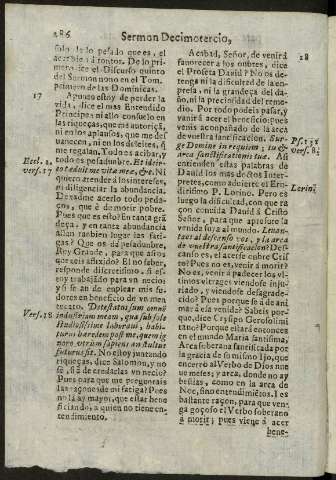 286 Sermon Decimotercio,
solo de lo pesado que es, el
acerbio à tontos. De lo pri-
mero dice el Discurso quinto
del Sermon nono en el Tom.
primero de las Dominicas.
17 A punto estoy de perder la
vida, dice el mas Entendido
Principe; ni allo consuelo en
las riqueças, que mi autoriça,
ni en los aplausos, que me
anochecen, ni en los deleites, que
me regalan, Todo es achibar, y
todo es pesadumbre. Et ideir-
Eccl. 2.
vers. 17
co tæduit me vitæ meæ, &c. Ni
quiero atender à los intereses,
ni diligenciar la abundancia.
Dexadme acerlo todo peda-
ços, que è de morir de pobre.
Pues que es esto? En tanta grã
deça, y en tanta abundancia
allan tambien lugar las fati-
gas? Que os dà pesadumbre,
Rey Grande, para que asi os
quexeis aflixido? El no saber,
responde discretisimo, si es-
toy trabajãdo para vn necio;
y si se an de esplicar mis su-
dores en beneficio de vn men-
tecato. Detestatus sum omnẽ
Vers. 18
industriam meam, qua sub sole
studiosissime laboravi, habi-
turus hæredem post me, quem ig-
noro vtrum sapiens an stultus
futurus sit. No estoy juntando
riqueças, dice Salomon, y no
sè, si à de eredarlas vn necio?
Pues para que me pregonais
las raçones de mi fatiga? Pues
no la ay mayor, que estar bene
ficiando, a quien no tiene en-
tendimiento.
Acabad, Señor, de venir à
18
favorecer à los onbres, dice
el Profeta David? No os de-
tenga ni la dificultad del ca-
mino, ni la grandeça del da-
ño, ni la preciosidad del reme-
dio. Por todo podeis pasar, y
vanir à acer el beneficio: pues
venis acompañado de la arca
de vuestra santificacion. Sur-
ge Domine in requiem; tu &
Ps. 131
Vers. 8.
arca sanctificationis tuæ. Asi
entienden estas palabras de
David los mas de estos Inter-
pretes, como advierte el Eru-
ditisimo P. Lorino. Pero es
Lorin.
luego la dificultad, con que ra
çon convida David à Cristo
Señor, para que apresure la
venida suya al mundo. Levan-
taos al descanso vos, y la arca
de vuestra santificacion? Des-
canso es, el acerse onbre Cris-
to? Pues no es, venir à morir?
No es, venir à padecer los vl-
timos rigores siendo injuria-
do, y viendose desagrade-
cido? Pues porque sò anima-
marà de la venida? Sabeis por-
que, dice Crispo Gerosolimi-
tano? Porque estarà entonces
en el mundo Maria santisima.
Arca soberana santificada por
la gracia de su mismo Ijo, que
encerrò al Verbo de Dios nue
ue meses; y arca, donde no ay
bestias, como en la arca de
Noe, sino entendimiẽtos. I es
bastante raçon, para que ven-
ga goçoso el Verbo soberano
à morir; pues viene à acer
bene-